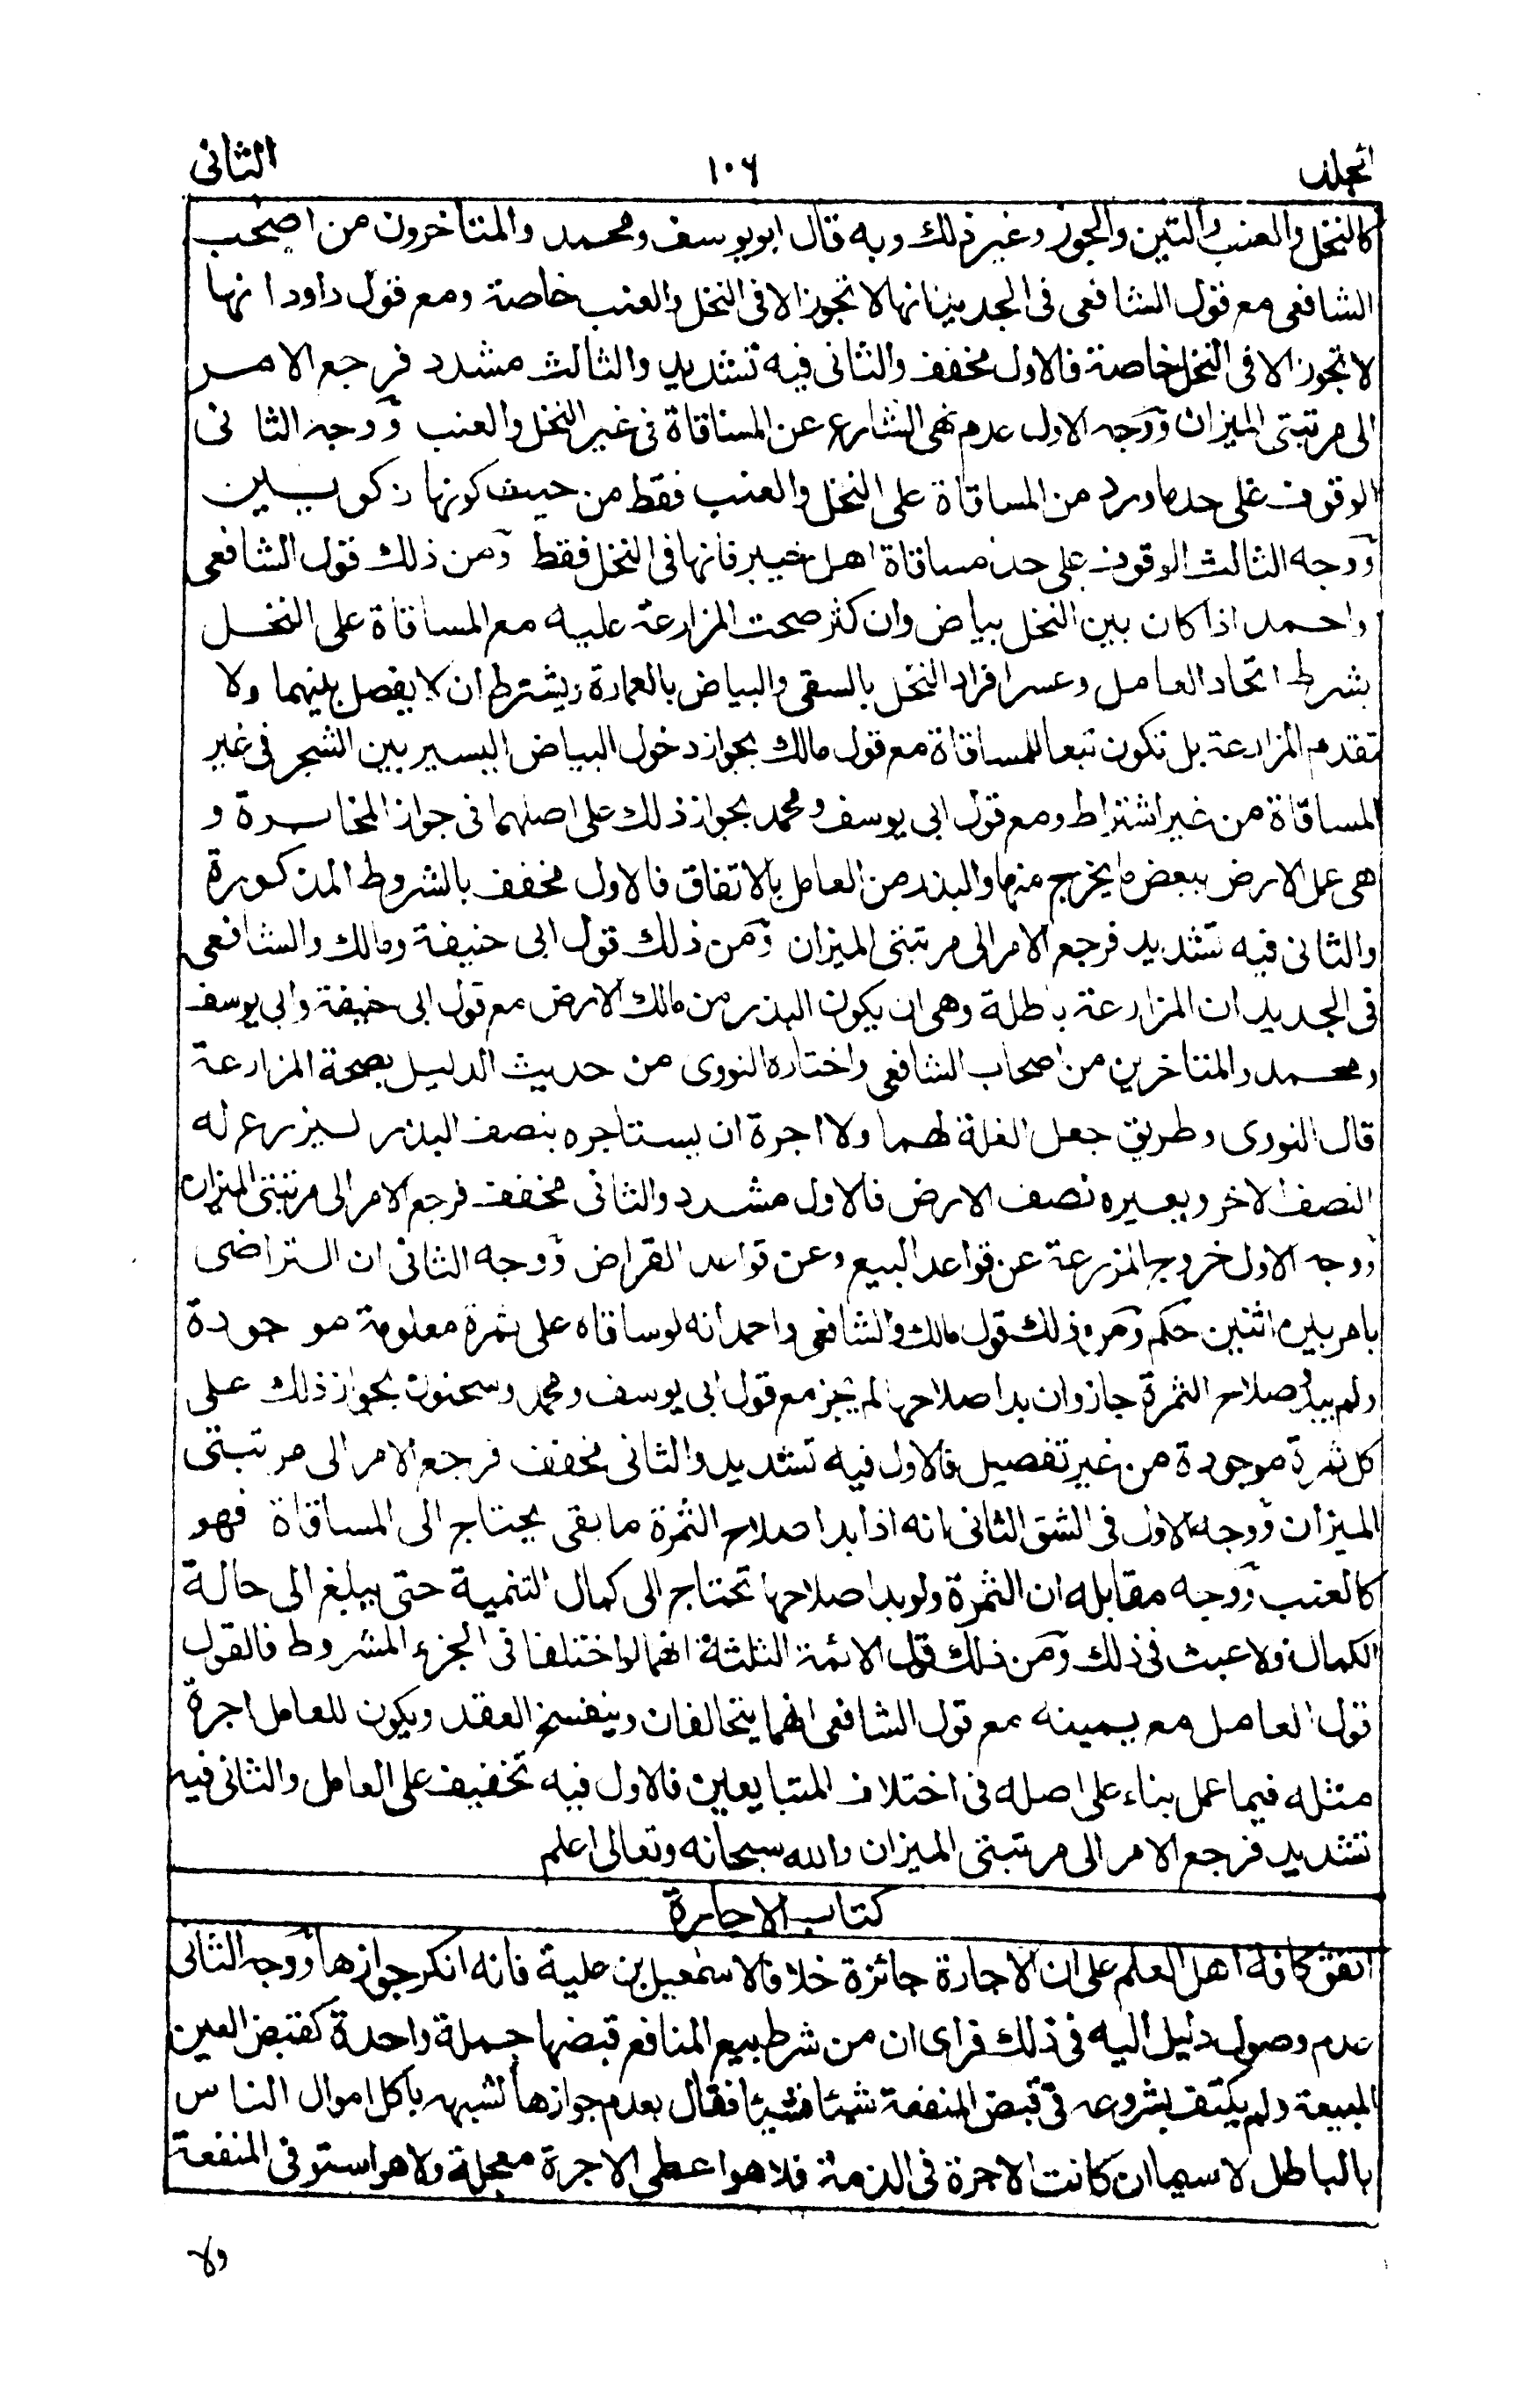 المجلد ١٠٦ الثانى
كالنخل والعنب والتين والجوز وغير ذلك وبه قال ابويوسف ومحمد والمتأخرون من اصحٰب
الشافعى مع قول الشافعى فى الجديد انها لا تجوز الا فى النخل والعنب خاصة ومع قول داود انها
لا تجوز الا فى النخل خاصة فالاول مخفف والثانى فيه تشديد والثالث مشدد فرجع الامر
الى مرتبتى الميزان ووجه الاول عدم نهى الشارع عن المساقاة فى غير النخل والعنب ووجه الثانى
الوقوف على حد ما ورد من المساقاة على النخل والعنب فقط من حيث كونها زكويين
ووجه الثالث الوقوف على حد مساقاة اهل خيبر فانها فى النخل فقط ومن ذلك قول الشافعى
واحمد اذا كان بين النخل بياض وان كثر صحت المزارعة عليه مع المساقاة على النخل
بشرط اتحاد العامل وعسر افراد النخل بالسقى والبياض بالعمارة ويشترط ان لا يفصل بينهما ولا
تقدم المزارعة بل تكون تبعا للمساقاة مع قول مالك بجواز دخول البياض اليسير بين الشجر فى غير
المساقاة من غير اشتراط ومع قول ابى يوسف ومحمد بجواز ذلك على اصلهما فى جواز المخابرة و
هى عمل الارض ببعض ما يخرج منها والبذر من العامل بالاتفاق فالاول مخفف بالشروط المذكورة
والثانى فيه تشديد فرجع الامر الى مرتبتى الميزان ومن ذلك قول ابى حنيفة ومالك والشافعى
فى الجديد ان المزارعة باطلة وهى ان يكون البذر من مالك الارض مع قول ابى حنيفة وابى يوسف
ومحمد والمتاخرين من اصحاب الشافعى واختاره النووى من حديث الدليل بصحة المزارعة
قال النووى وطريق جعل الغلة لهما ولا اجرة ان يستاجره بنصف البذر ليزرع له
النصف الاخر ويعيره نصف الارض فالاول مشدد والثانى مخفف فرجع الامر الى مرتبتى الميزان
ووجه الاول خروج المزرعة عن قواعد البيع وعن قواعد القراض ووجه الثانى ان التراضى
بامر بين اثنين حكم ومن ذلك قول مالك والشافعى واحمد انه لو ساقاه على ثمرة معلومة موجودة
ولم يبد صلاح الثمرة جاز وان بدا صلاحها لم يجز مع قول ابى يوسف ومحمد وسحنون بجواز ذلك على
كل ثمرة موجودة من غير تفصيل فالاول فيه تشديد والثانى مخفف فرجع الامر الى مرتبتى
الميزان ووجه الاول فى الشق الثانى انه اذا بدا صلاح الثمرة ما بقى يحتاج الى المساقاة فهو
كالعنب ووجه مقابله ان الثمرة ولو بدا صلاحها تحتاج الى كمال التنمية حتى يبلغ الى حالة
الكمال ولا عبث فى ذلك ومن ذلك قول الائمة الثلثة انهما لو اختلفا فى الجزء المشروط فالقول
قول العامل مع يمينه مع قول الشافعى انهما يتحالفان وينفسخ العقد ويكون للعامل اجرة
مثله فيما عمل بناء على اصله فى اختلاف المتبايعين فالاول فيه تخفيف على العامل والثانى فيه
تشديد فرجع الامر الى مرتبتى الميزان والله سبحانه وتعالى اعلم
كتاب الاجارة
اتفق كافة اهل العلم على ان الاجارة جائزة خلافا لاسمٰعيل بن علية فانه انكر جوازها ووجه الثانى
عدم وصول دليل اليه فى ذلك فراى ان من شرط بيع المنافع قبضها جملة واحدة كقبض العين
المبيعة ولم يكتف بشروعه فى قبض المنفعة شيئا فشيئا فقال بعدم جوازها لشبهه باكل اموال الناس
بالباطل لا سيما ان كانت الاجرة فى الذمة فلا هو اعطى الاجرة معجلة ولا هو استوفى المنفعة
ولا